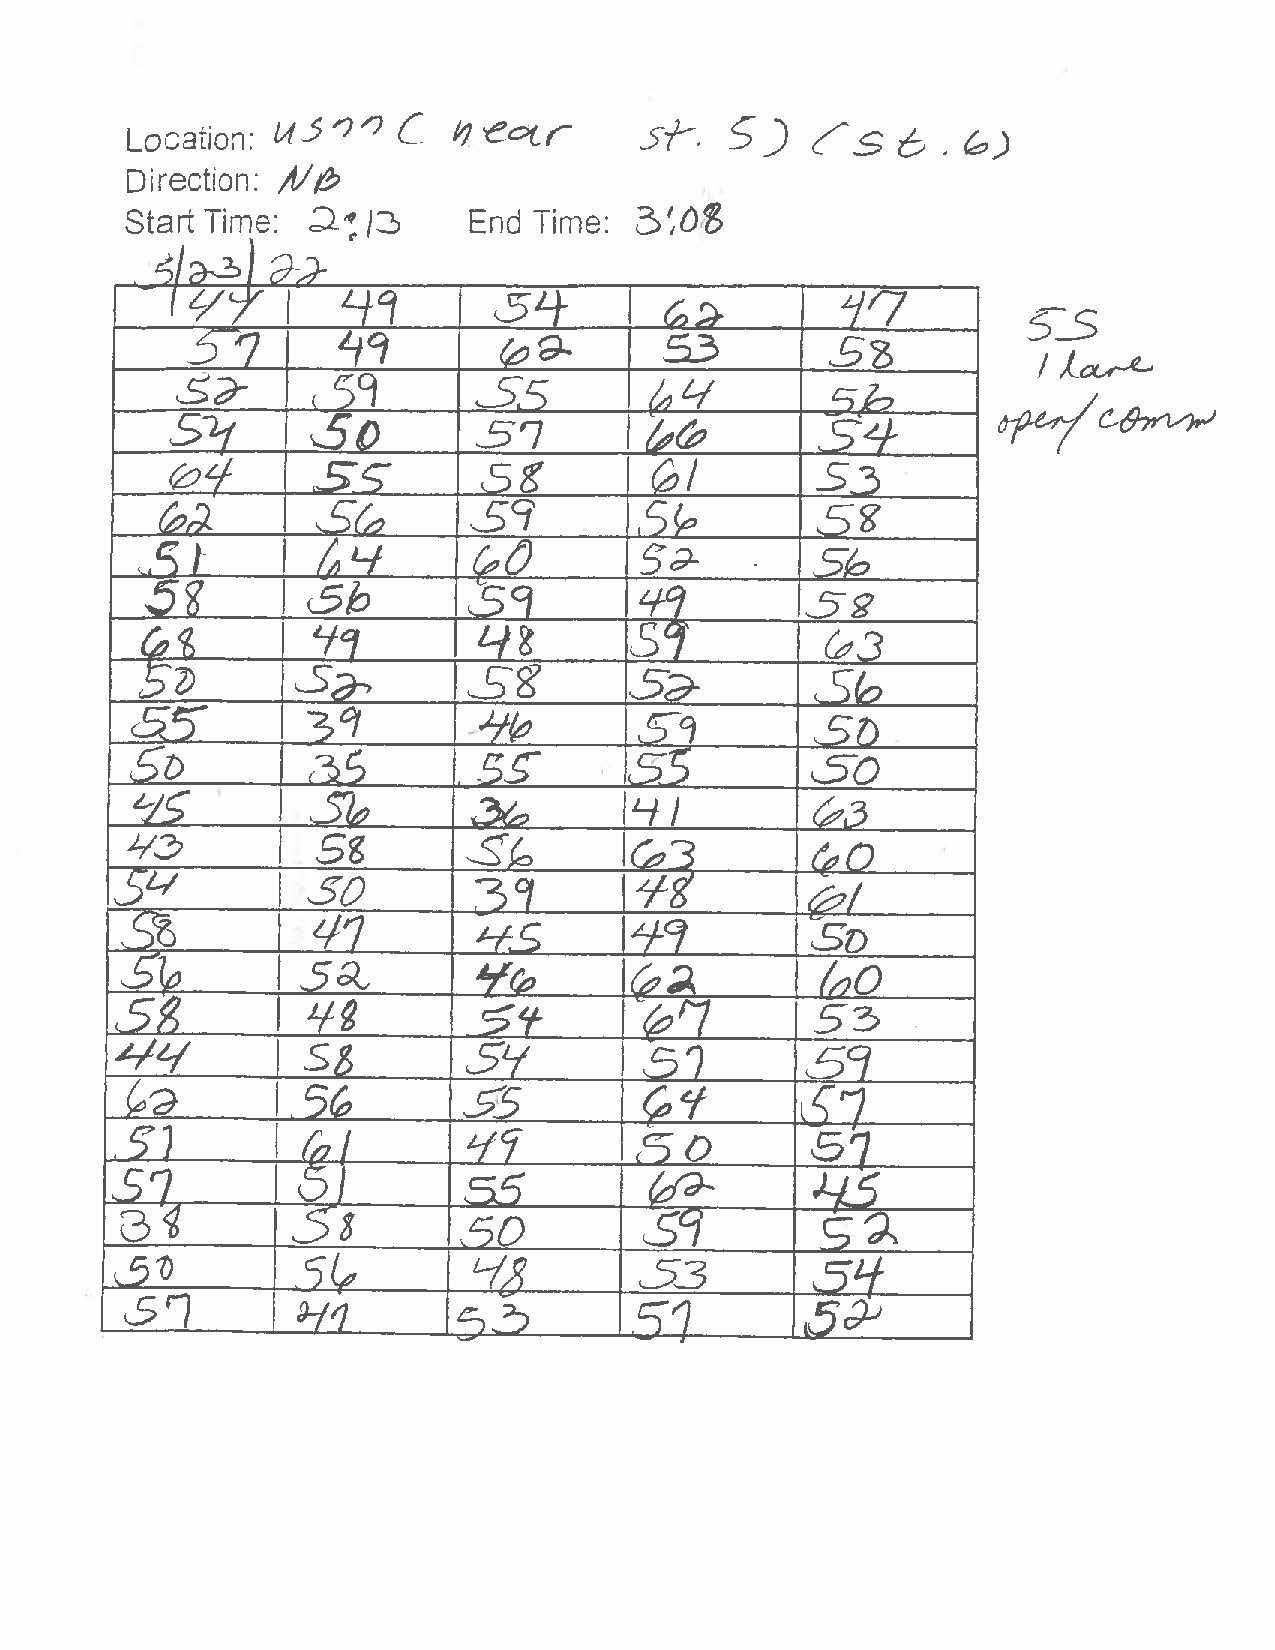 Location: US77 C near st. 5) (St. 6)
Direction: NB
Start Time: 2:13 End Time: 3:08
5/23/22
44 49 54 62 47
57 49 62 53 58
52 59 55 64 56
54 50 57 66 54
64 55 58 61 53
62 56 59 56 58
51 64 60 52 56
58 56 59 49 58
68 49 48 59 63
50 52 58 52 56
55 39 46 59 50
50 35 55 55 50
45 56 36 41 63
43 58 56 63 60
54 50 39 48 61
58 47 45 49 50
56 52 46 62 60
58 48 54 67 53
44 58 54 57 59
62 56 55 64 57
51 61 49 50 57
57 51 55 62 45
38 58 50 59 52
50 56 48 53 54
57 47 53 57 52
55
1 lane
open/comm